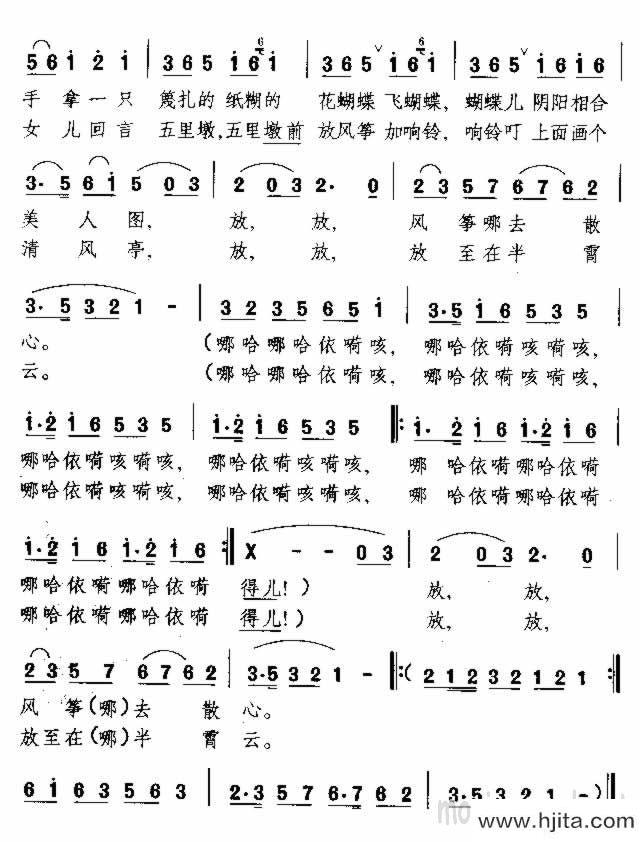 5 6 i 2 i | 3 6 5 i 6 i | 3 6 5 i 6 i | 3 6 5 i 6 i 6
手拿一只 篾扎的纸糊的 花蝴蝶飞蝴蝶, 蝴蝶儿阴阳相合
女儿回言 五里墩,五里墩前 放风筝加响铃, 响铃叮上面画个
3· 5 6 i 5 0 3 | 2 0 3 2· 0 | 2 3 5 7 6 7 6 2
美人图, 放, 放, 风筝哪去散
清风亭, 放, 放, 放至在半霄
3· 5 3 2 1 - | 3 2 3 5 6 5 i | 3·5 i 6 5 3 5
心。 (哪哈哪哈依嗬咳, 哪哈依嗬咳嗬咳,
云。 (哪哈哪哈依嗬咳, 哪哈依嗬咳嗬咳,
i·2 i 6 5 3 5 | i·2 i 6 5 3 5 |: i· 2 i 6 i·2 i 6
哪哈依嗬咳嗬咳, 哪哈依嗬咳嗬咳, 哪 哈依嗬哪哈依嗬
哪哈依嗬咳嗬咳, 哪哈依嗬咳嗬咳, 哪 哈依嗬哪哈依嗬
i·2 i 6 i·2 i 6 :| X - - 0 3 | 2 0 3 2· 0
哪哈依嗬哪哈依嗬 得儿!) 放, 放,
哪哈依嗬哪哈依嗬 得儿!) 放, 放,
2 3 5 7 6 7 6 2 | 3·5 3 2 1 - |: (2 1 2 3 2 1 2 1 :|
风筝(哪)去散心。
放至在(哪)半霄云。
6 i 6 3 5 6 3 | 2·3 5 7 6·7 6 2 | 3·5 3 2 1 -) ‖
www.hjita.com